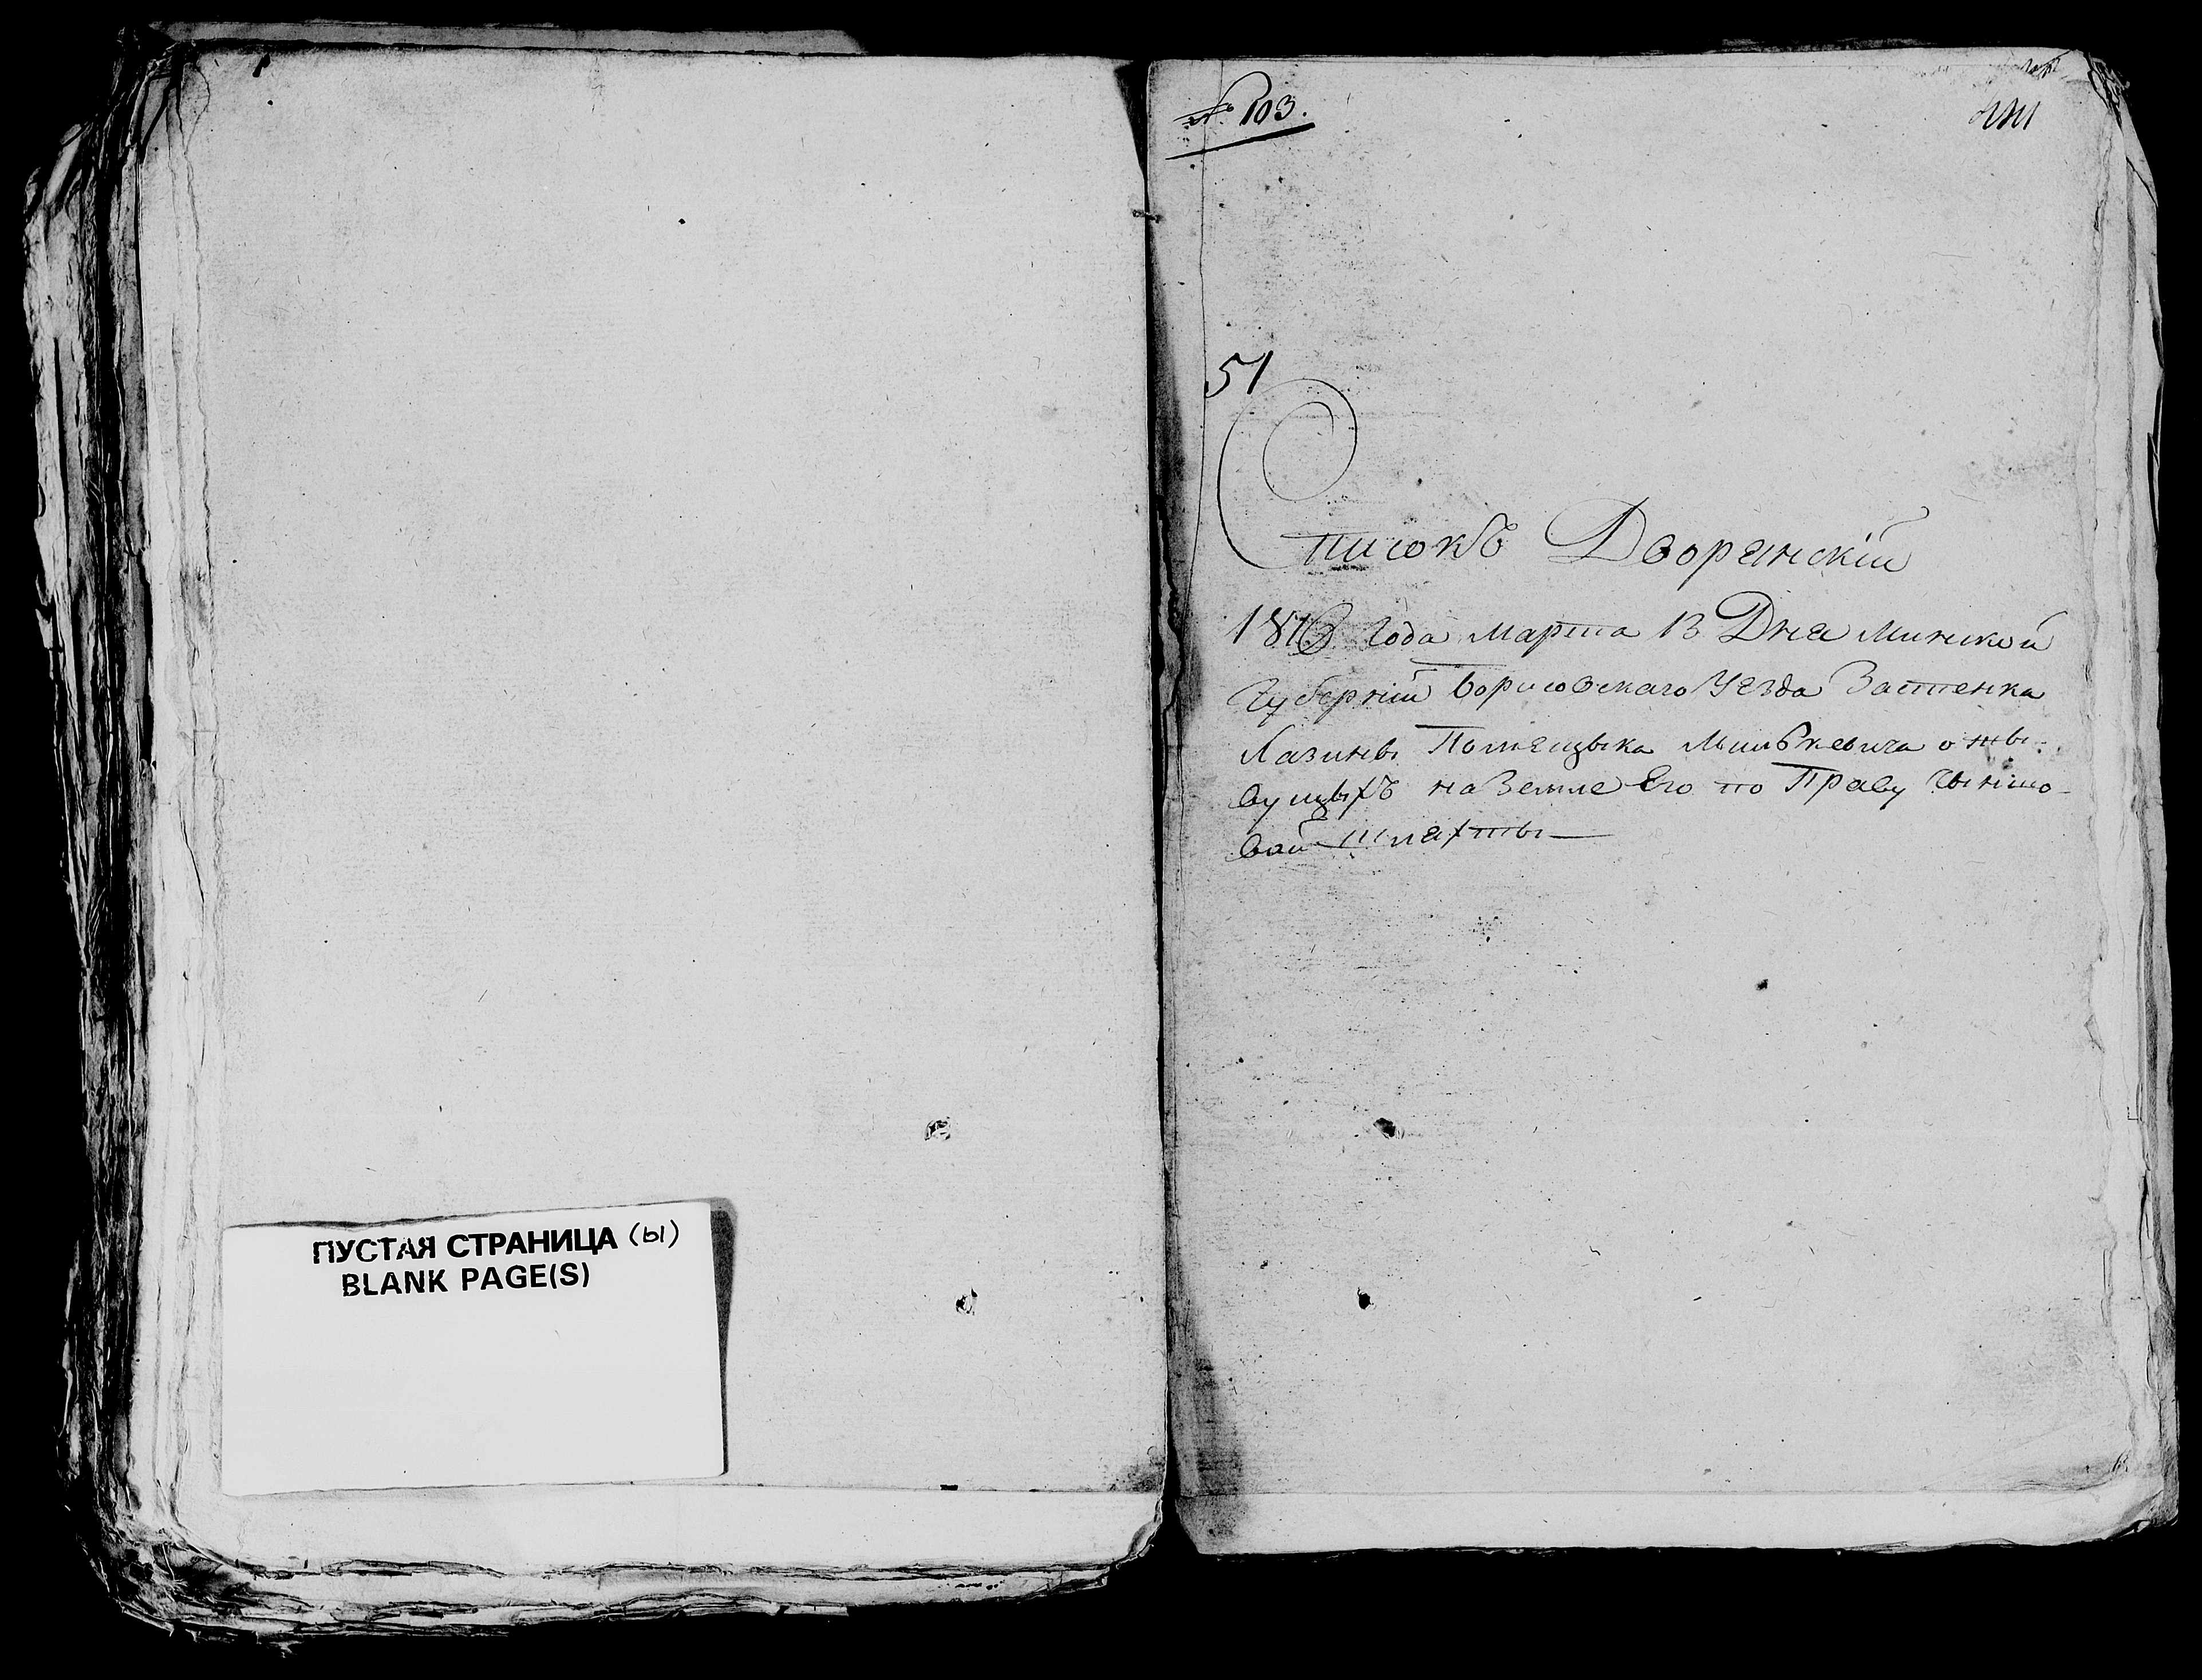 ПУСТАЯ СТРАНИЦА (ы)
BLANK PAGE(S)
№ 103.
51
Списокъ Дворянскій
года марта 13 Дня минской
Губерніи Борисовскаго Уезда Застенка
Лазинъ Помещыка о жы-
вущыхъ на Земле Его по Праву Чыншо-
вой Шляхты